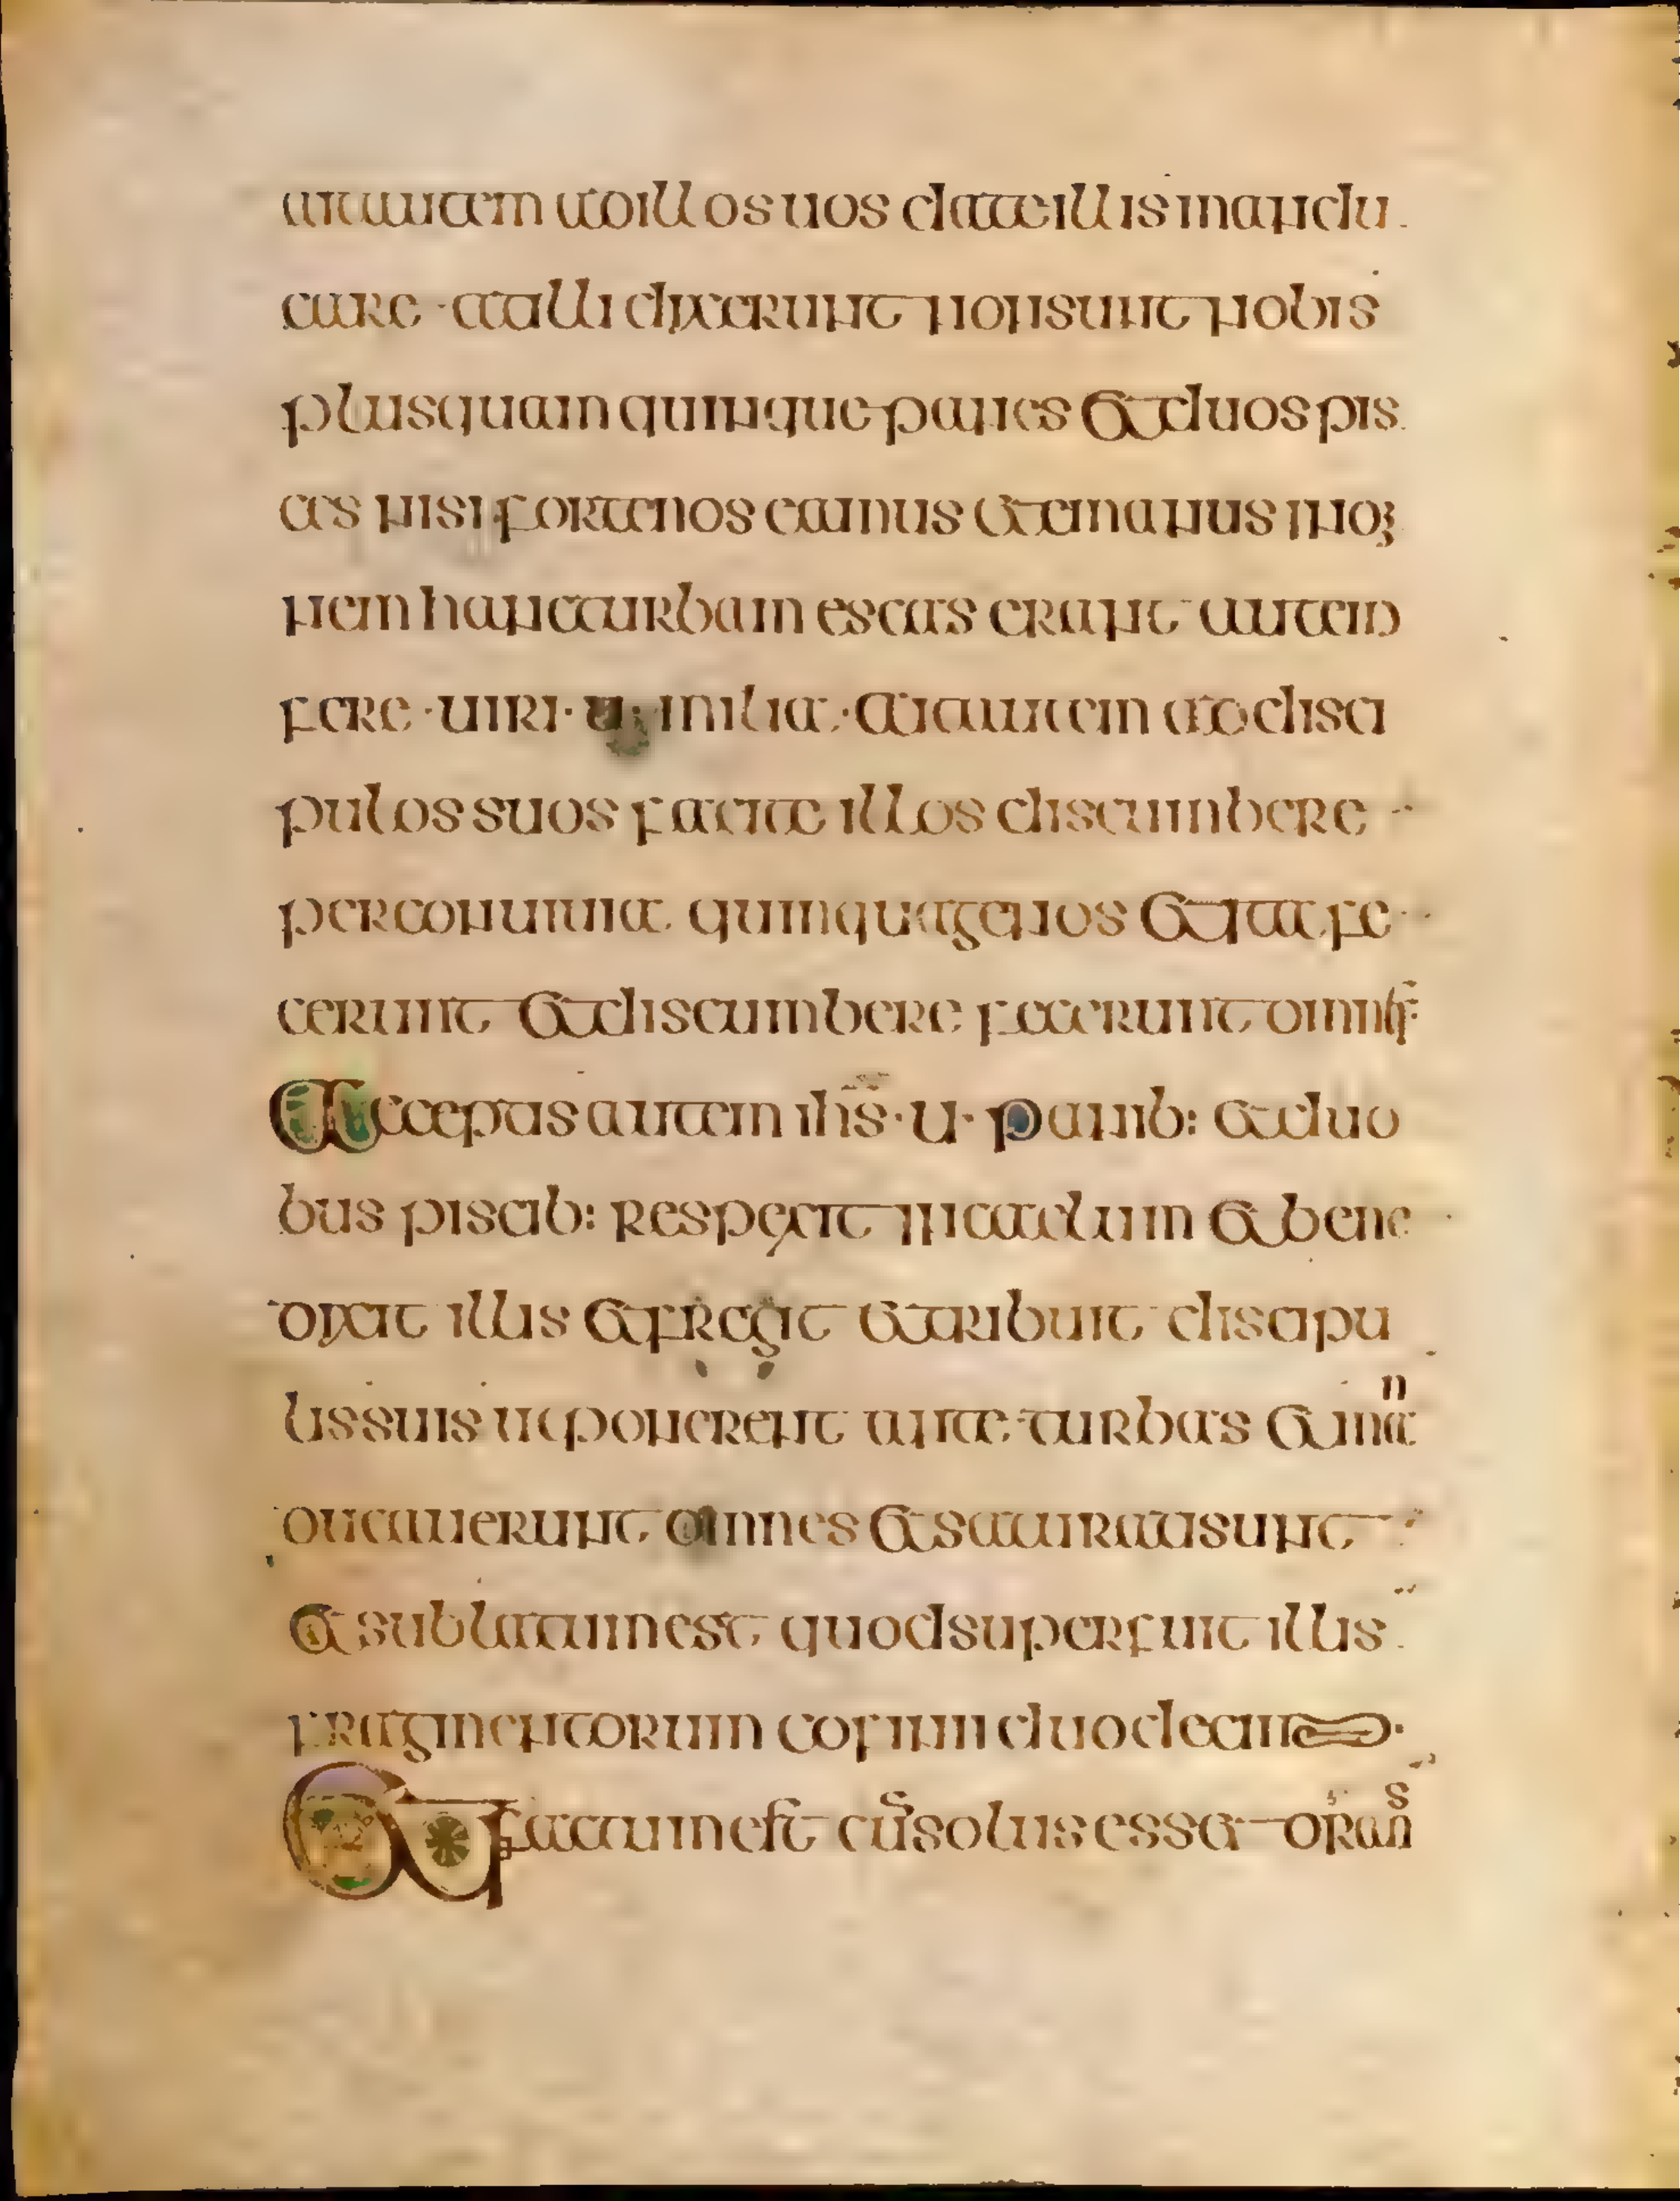 autem ad illos uos date illis mandu
care · at illi dixerunt non sunt nobis
plusquam quinque panes et duos pis
ces nisi forte nos eamus et emamus in om
nem hanc turbam escas erant autem
fere · uiri · u · milia · ait autem ad disci
pulos suos facite illos discumbere
per conuiuia quinquagenos et ita fe
cerunt et discumbere fecerunt omnes
Acceptis autem ihs · u · panib: et duo
bus piscib: respexit in caelum et bene
dixit illis et fregit et tribuit discipu
lis suis ut ponerent ante turbas et man
ducauerunt omnes et saturati sunt
et sublatum est quod superfuit illis
fragmentorum cofini duodecim
Et factum est cū solus esset orans